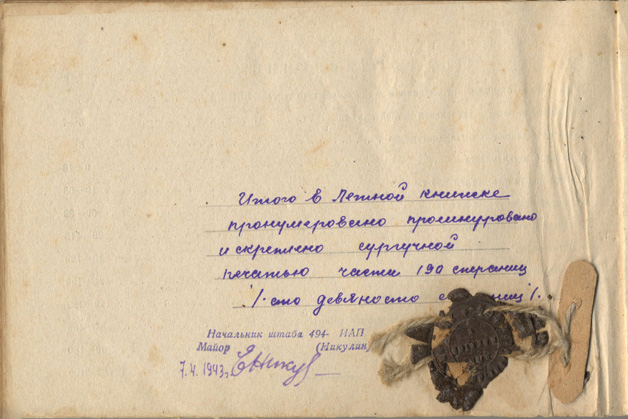 Итого в Летной книжке
пронумеровано прошнуровано
и скреплено сургучной
печатью части 190 страниц
/. сто девяносто
Начальник штаба 494- ИАП
Майор (Никулин
7.4.1943г.